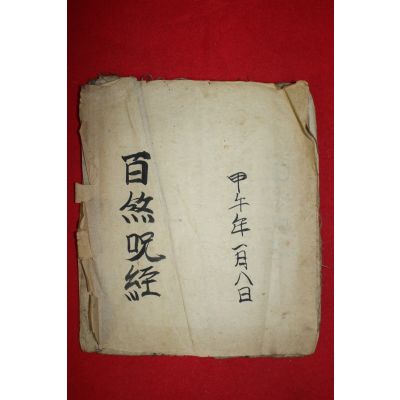 百煞呪經
甲午年一月八日